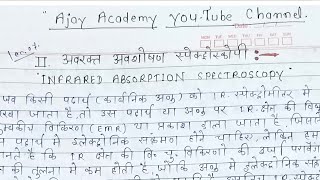 "Ajay Academy YouTube Channel.
Lec.07.
II. अवरक्त अवशोषण स्पेक्ट्रोस्कोपी :-
"INFRARED ABSORPTION SPECTROSCOPY"
जब किसी पदार्थ (कार्बनिक अणु) को I.R. स्पेक्ट्रोमीटर में
रखा जाता है, तो उस पदार्थ या अणु पर I.R. क्षेत्र की विद्युत
चुम्बकीय विकिरण (EMR) या प्रकाश डाला जाता है, जिससे
पदार्थ में इलेक्ट्रॉनिक संक्रमण होने चाहिए, लेकिन हम
जानते हैं कि I.R. क्षेत्र की वि. चु. विकिरणों की ऊर्जा
की तुलना में कम होती है, जोकि अणु में इलेक्ट्रॉनिक